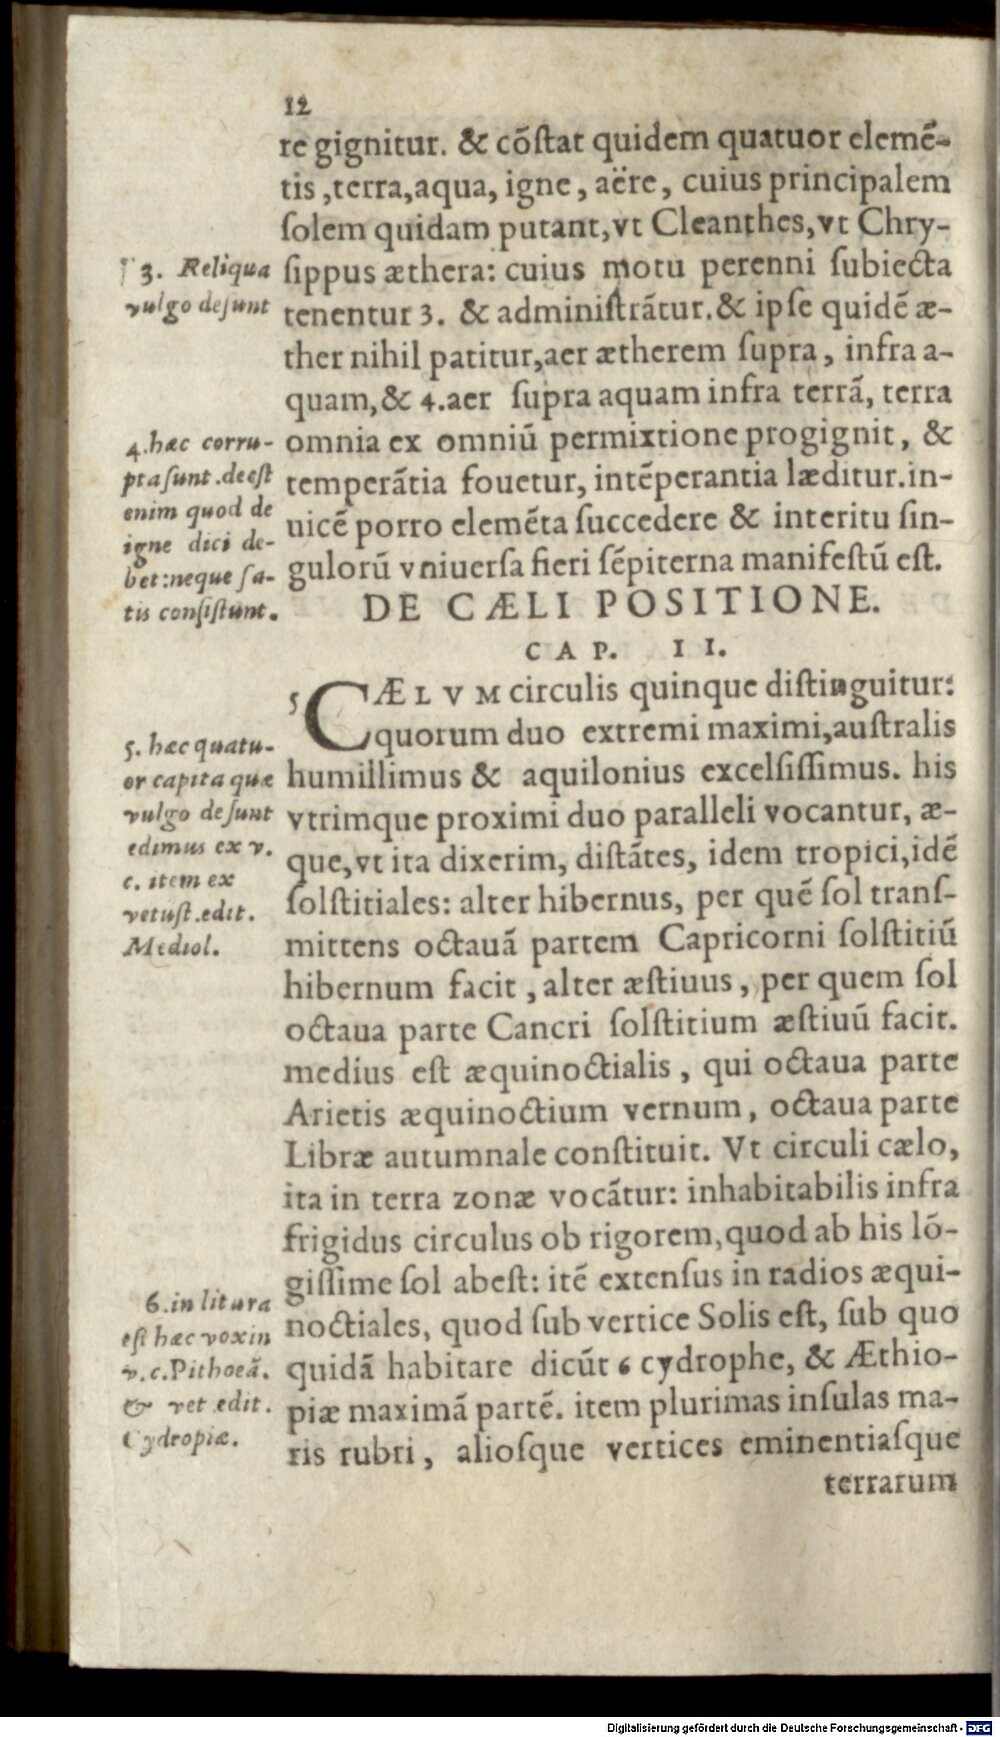 12
re gignitur. & cõſtat quidem quatuor elemẽ-
tis ,terra,aqua, igne , aëre , cuius principalem
ſolem quidam putant,vt Cleanthes,vt Chry-
ſippus æthera: cuius motu perenni ſubiecta
tenentur 3. & adminiſtrãtur.& ipſe quidẽ æ-
ther nihil patitur,aer ætherem ſupra , infra a-
quam,& 4.aer ſupra aquam infra terrã, terra
omnia ex omniũ permixtione progignit , &
temperãtia fouetur, intẽperantia læditur.in-
uicẽ porro elemẽta ſuccedere & interitu ſin-
gulorũ vniuerſa fieri ſẽpiterna manifeſtũ eſt.
3. Reliqua
vulgo deſunt
4.hæc corru-
pta ſunt .deeſt
enim quod de
igne dici de-
bet:neque ſa-
tis conſiſtunt.
DE CÆLI POSITIONE.
CAP. II.
5 CÆLVM circulis quinque diſtinguitur:
quorum duo extremi maximi,auſtralis
humillimus & aquilonius excelſiſſimus. his
vtrimque proximi duo paralleli vocantur, æ-
que,vt ita dixerim, diſtãtes, idem tropici,idẽ
ſolſtitiales: alter hibernus, per quẽ ſol tranſ-
mittens octauã partem Capricorni ſolſtitiũ
hibernum facit , alter æſtiuus , per quem ſol
octaua parte Cancri ſolſtitium æſtiuũ facit.
medius eſt æquinoctialis , qui octaua parte
Arietis æquinoctium vernum , octaua parte
Libræ autumnale conſtituit. Vt circuli cælo,
ita in terra zonæ vocãtur: inhabitabilis infra
frigidus circulus ob rigorem,quod ab his lõ-
giſſime ſol abeſt: itẽ extenſus in radios æqui-
noctiales, quod ſub vertice Solis eſt, ſub quo
quidã habitare dicũt 6 cydrophe, & Æthio-
piæ maximã partẽ. item plurimas inſulas ma-
ris rubri , alioſque vertices eminentiaſque
terrarum
5. hæc quatu-
or capita quæ
vulgo deſunt
edimus ex v.
c. item ex
vetuſt.edit.
Mediol.
6.in litura
eſt hæc vox in
v.c.Pithoeã.
& vet.edit.
Cydropiæ.
Digitalisierung gefördert durch die Deutsche Forschungsgemeinschaft - DFG